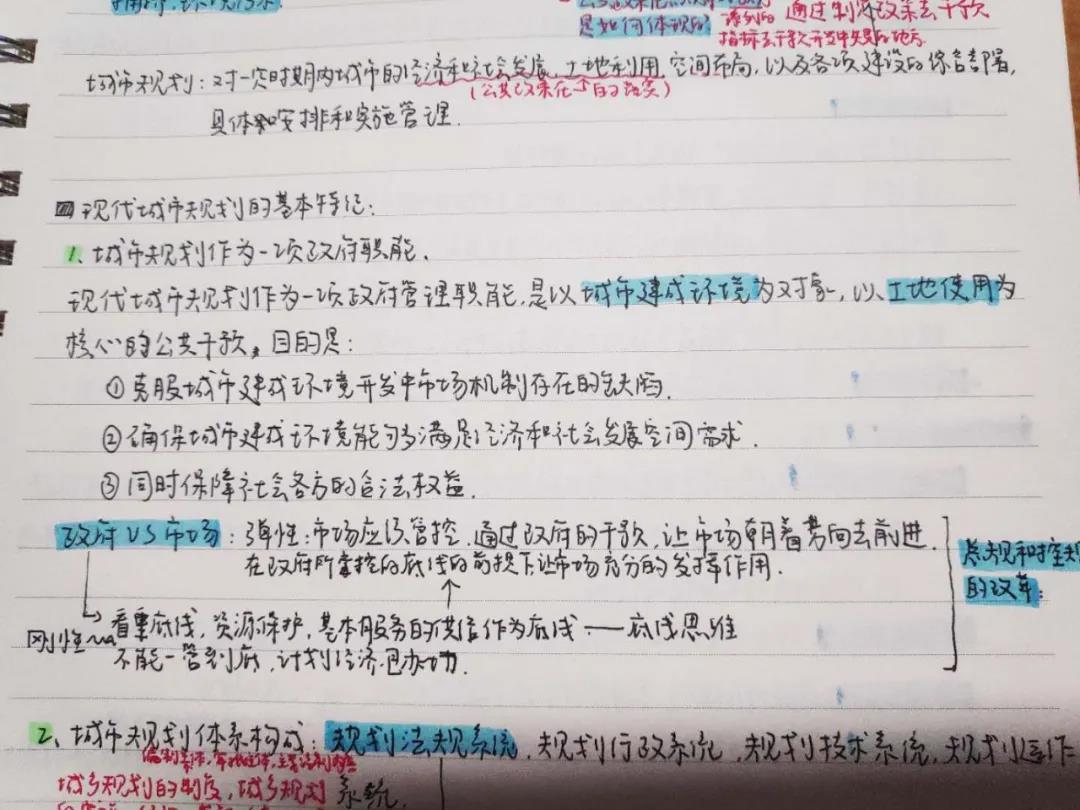 是如何体现的 通过制定政策去干预
指标去干预开发中失灵的地方
城市规划：对一定时期内城市的经济和社会发展、土地利用、空间布局，以及各项建设的综合部署，
（公共政策在 的落实）
具体和安排和实施管理．
现代城市规划的基本特征：
1. 城市规划作为一项政府职能．
现代城市规划作为一项政府管理职能，是以城市建成环境为对象，以土地使用为
核心的公共干预，目的是：
①克服城市建成环境开发中市场机制存在的缺陷．
②确保城市建成环境能够满足经济和社会发展空间需求．
③同时保障社会各方的合法权益．
政府VS市场：弹性：市场应该管控，通过政府的干预，让市场朝着方向去前进．
在政府所掌控的底线的前提下，让市场充分的发挥作用．
总规和控规
的改革：
看重底线，资源保护，基本服务的供给作为底线——底线思维
刚性
不能一管到底，计划经济包办．
2、城市规划体系构成：规划法规系统，规划行政系统，规划技术系统，规划运作
城乡规划的制度，城乡规划
系统．